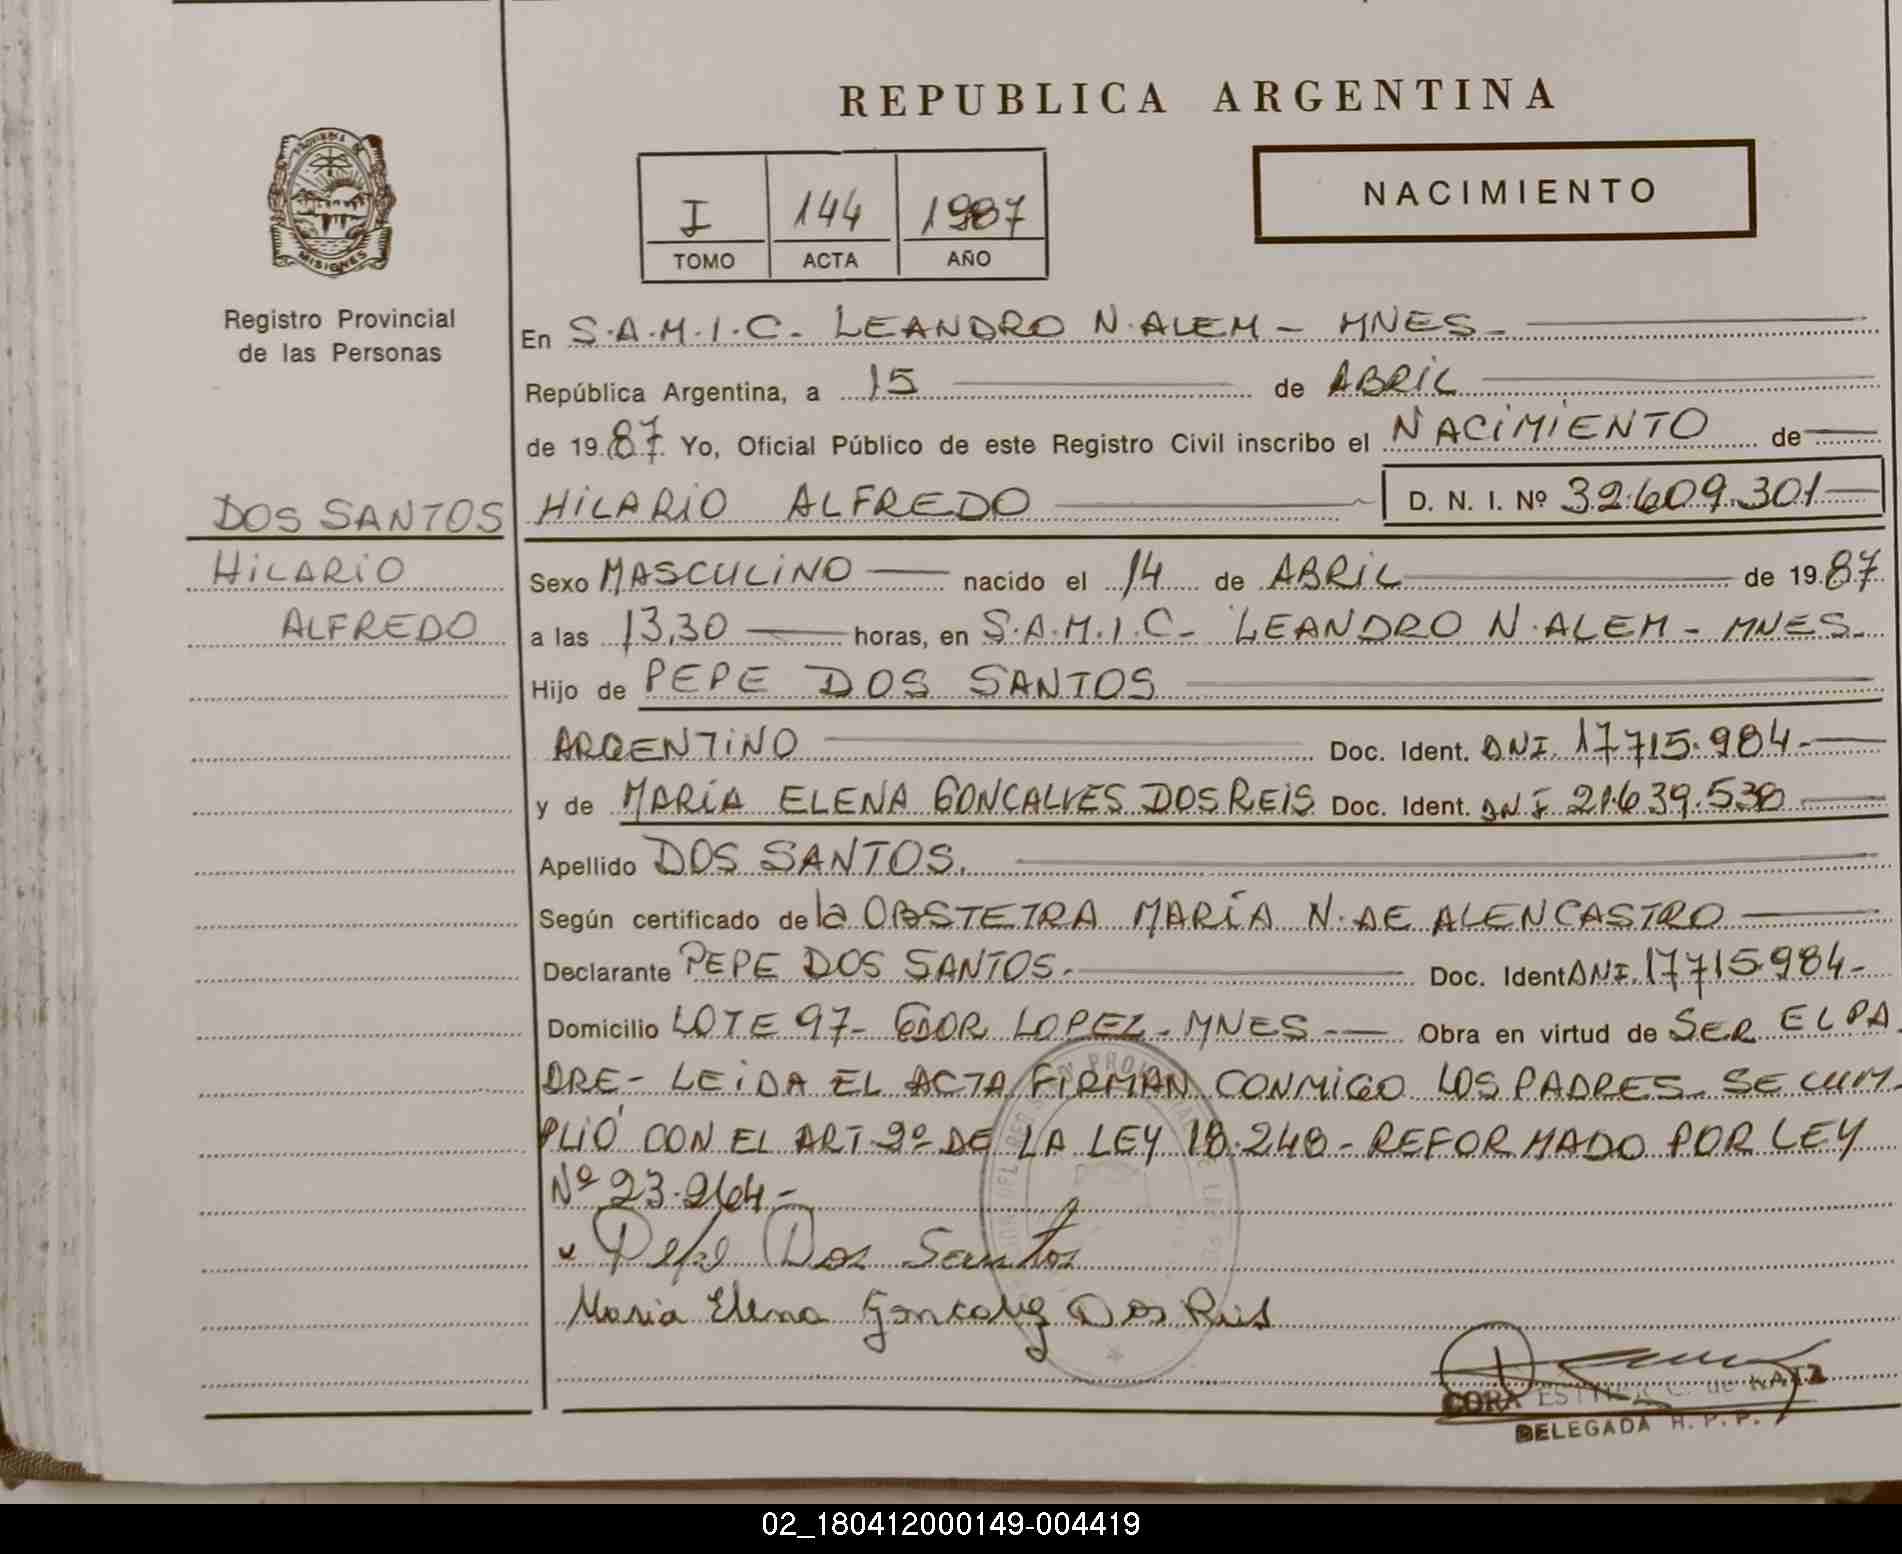 REPUBLICA ARGENTINA
PROVINCIA DE
MISIONES
Registro Provincial
de las Personas
I 144 1987
TOMO ACTA AÑO
NACIMIENTO
En S.A.M.I.C- LEANDRO N. ALEM - MNES-
República Argentina, a 15 de ABRIL
de 19 87 Yo, Oficial Público de este Registro Civil inscribo el NACIMIENTO de
DOS SANTOS
HILARIO
ALFREDO
HILARIO ALFREDO D. N. I. Nº 32.609.301
Sexo MASCULINO nacido el 14 de ABRIL de 19 87
a las 13,30 horas, en S.A.M.I.C- LEANDRO N. ALEM - MNES-
Hijo de PEPE DOS SANTOS
ARGENTINO Doc. Ident. DNI. 17715.984-
y de MARÍA ELENA GONCALVES DOS REIS Doc. Ident. DNI 21.639.538
Apellido DOS SANTOS.
Según certificado de la OBSTETRA MARÍA N. DE ALENCASTRO
Declarante PEPE DOS SANTOS.- Doc. Ident DNI. 17715984-
Domicilio LOTE 97- GDOR LOPEZ - MNES - Obra en virtud de SER EL PA
DRE- LEIDA EL ACTA FIRMAN CONMIGO LOS PADRES- SE CUM-
PLIÓ CON EL ART. 2º DE LA LEY 18.248 - REFORMADO POR LEY
Nº 23.264-
Pepe Dos Santos
Maria Elena Dos Reis
CORA ESTHER C. de
DELEGADA R. P. P.
02_180412000149-004419